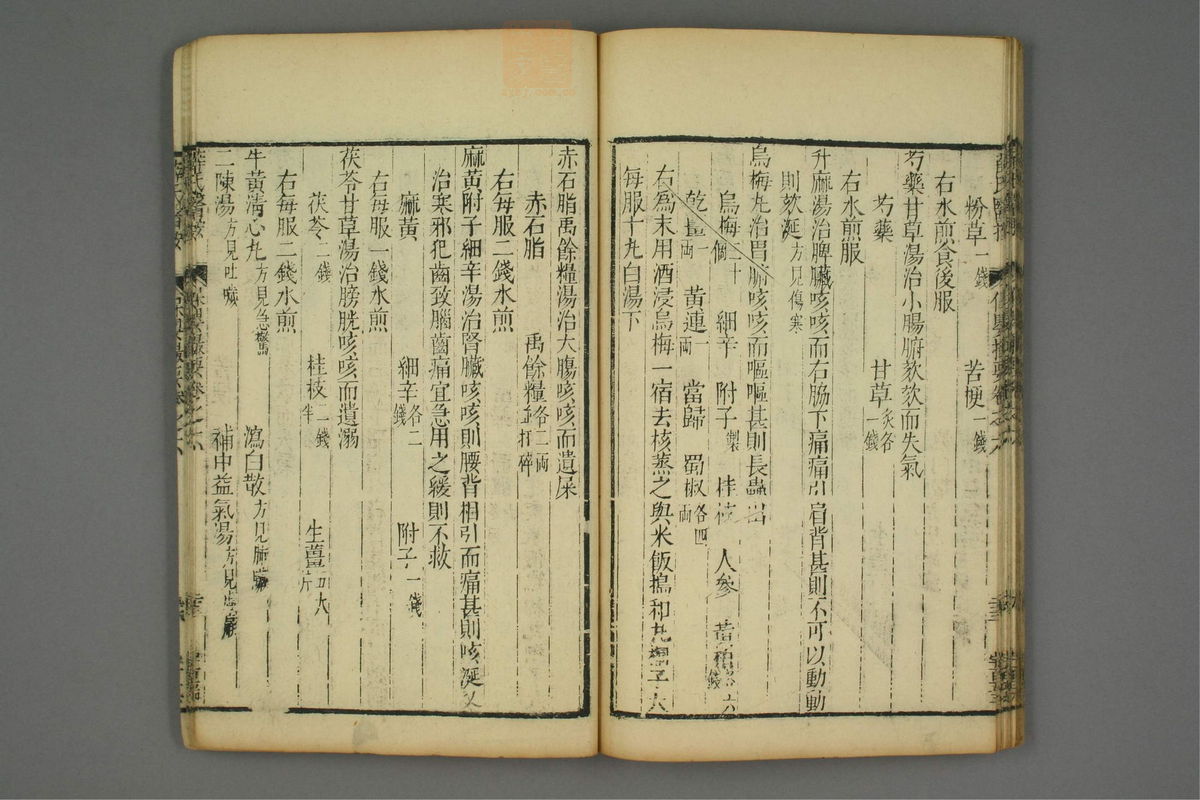 粉草一錢　苦梗一錢
右水煎食後服
芍藥甘草湯治小腸腑欬欬而失氣
芍藥　甘草炙各一錢
右水煎服
升麻湯治脾臟咳咳而右脇下痛痛引肩背甚則不可以動動
則欬涎方見傷寒
烏梅丸治胃腑咳咳而嘔嘔甚則長蟲出
烏梅三十個　細辛　附子製　桂枝　人參　黃栢各六錢
乾薑一兩　黃連一兩　當歸　蜀椒各四兩
右為末用酒浸烏梅一宿去核蒸之與米飯搗和丸桐子大
每服十丸白湯下
赤石脂禹餘糧湯治大腸咳咳而遺屎
赤石脂　禹餘糧各二兩並打碎
右每服二錢水煎
麻黃附子細辛湯治腎臟咳咳則腰背相引而痛甚則咳涎又
治寒邪犯齒致腦齒痛宜急用之緩則不救
麻黃　細辛各二錢　附子一錢
右每服一錢水煎
茯苓甘草湯治膀胱咳咳而遺溺
茯苓二錢　桂枝二錢半　生薑五大片
右每服二錢水煎
牛黃清心丸方見急驚　瀉白散方見肺臟
二陳湯方見吐瀉　補中益氣湯方見
薛氏醫按　保嬰撮要卷之六